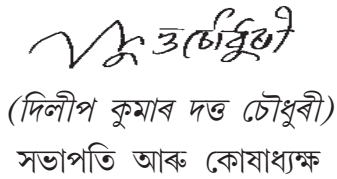 (দিলীপ কুমাৰ দত্ত চৌধুৰী)
সভাপতি আৰু কোষাধ্যক্ষ